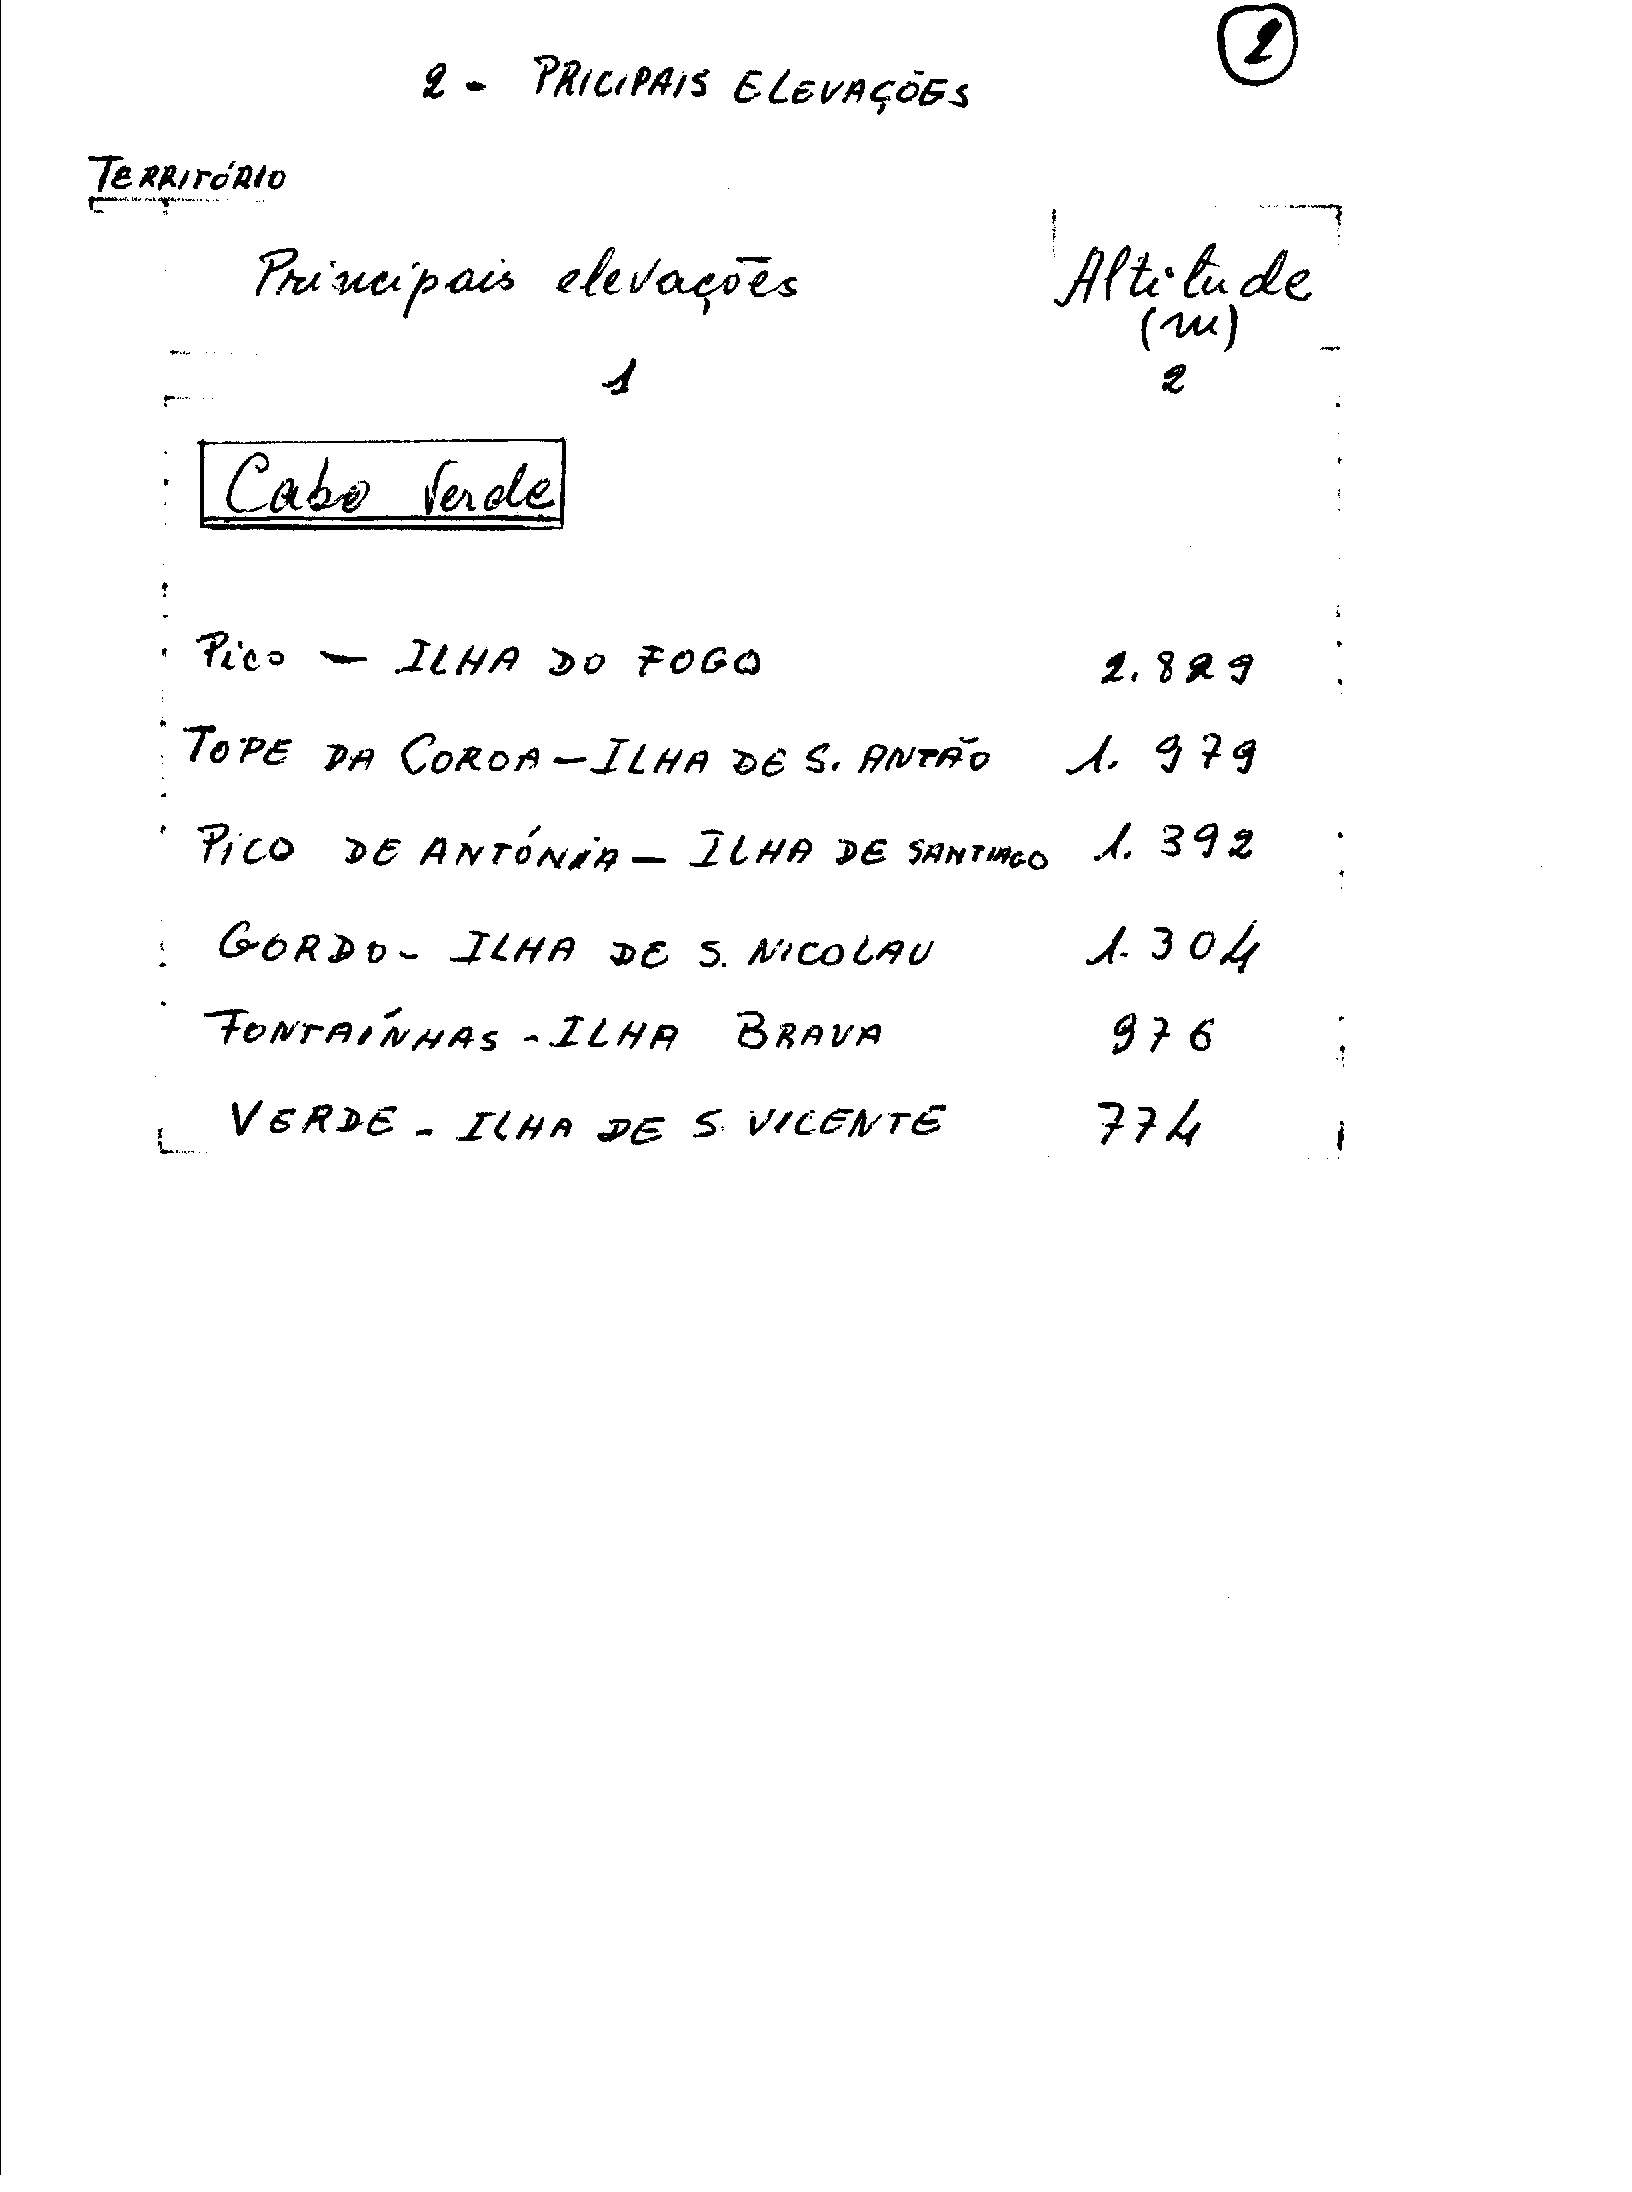 2
2 - PRICIPAIS ELEVAÇÕES
TERRITÓRIO
Principais elevações Altitude
(m)
1 2
Cabo Verde
Pico — ILHA DO FOGO 2.829
TOPE DA COROA — ILHA DE S. ANTÃO 1.979
PICO DE ANTÓNIA — ILHA DE SANTIAGO 1.392
GORDO - ILHA DE S. NICOLAU 1.304
FONTAÍNHAS - ILHA BRAVA 976
VERDE - ILHA DE S. VICENTE 774